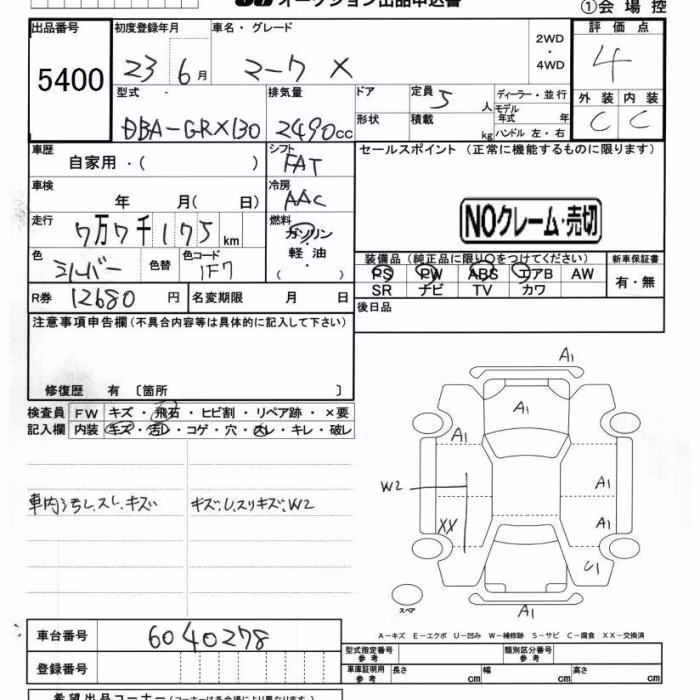 オークション出品申込書
①会場控
出品番号
5400
初度登録年月
23 6月
車名・グレード
マークX
2WD
・
4WD
評価点
4
外装 内装
C C
型式
DBA-GRX130
排気量
2490cc
ドア
形状
定員 5人
積載 kg
ディーラー・並行
モデル年式 年
ハンドル 左・右
車歴
自家用・( )
シフト
FAT
セールスポイント (正常に機能するものに限ります)
NOクレーム・売切
車検
年 月( 日)
冷房
AAC
走行
7万7千175km
燃料
ガソリン
軽・油
( )
色
シルバー
色替
色コード
1F7
装備品(純正品に限り○をつけてください)
PS PW ABS エアB AW
SR ナビ TV カワ
新車保証書
有・無
R券 12680円
名変期限 月 日
後日品
注意事項申告欄(不具合内容等は具体的に記入して下さい)
修復歴 有〔箇所 〕
検査員 FW キズ・飛石・ヒビ割・リペア跡・×要
記入欄 内装 キズ・汚レ・コゲ・穴・スレ・キレ・破レ
A1
A1
A1
W2
A1
XX
A1
U1
A1
車内汚レ、スレ、キズ
キズ、U、スリキズ、W2
スペア
A-キズ E-エクボ U-凹み W-補修跡 S-サビ C-腐食 XX-交換済
車台番号
6040278
登録番号
型式指定番号 参考
類別区分番号 参考
車庫証明用 参考
長さ cm
幅 cm
高さ cm
希望出品コーナー(コーナーは各会場により異なります)